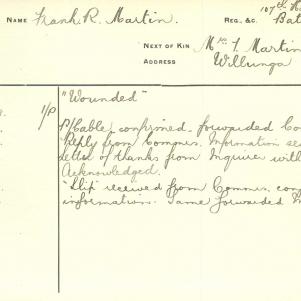 NAME Frank. R. Martin. REG. &C. 107th
Bat
NEXT OF KIN Mrs. F. Martin
ADDRESS Willunga
"Wounded"
1/P P/Cable, confirmed. Forwarded Co
Reply from Commrs. Information se
letter of thanks from Inquirer will
Acknowledged.
"Slip" received from Commrs. con
information. Same forwarded